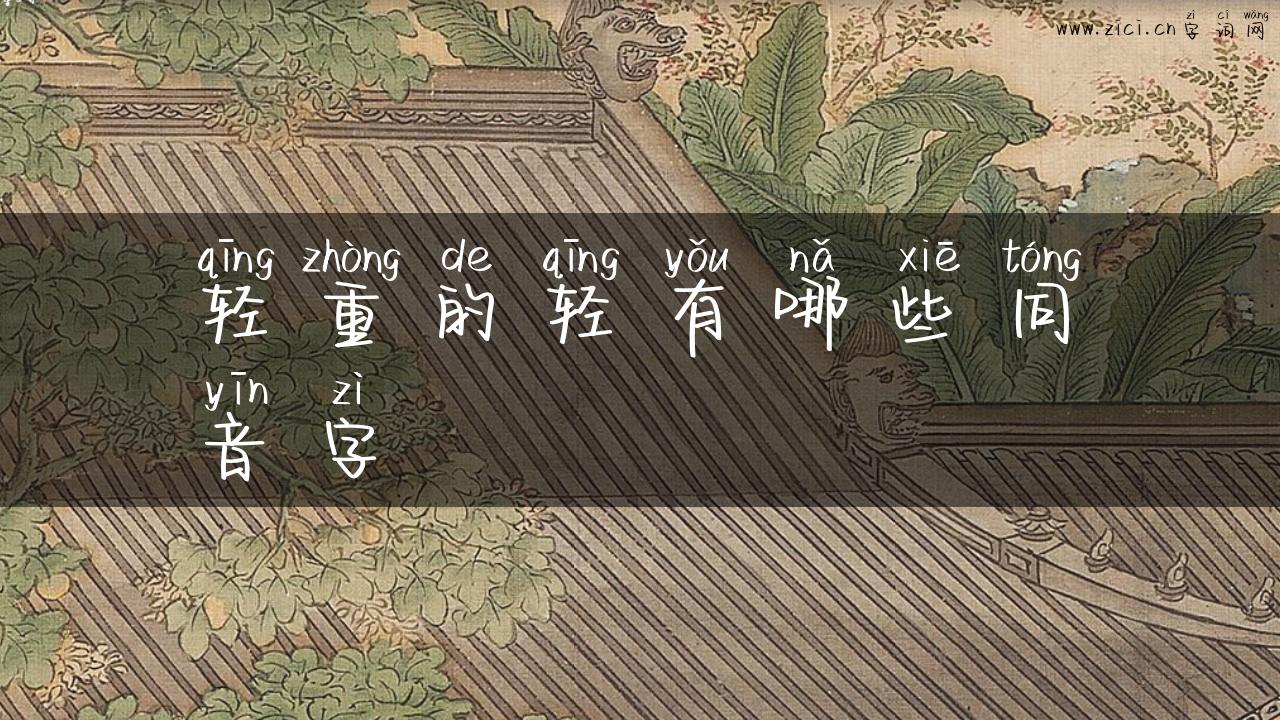 zì cí wǎng
www.zici.cn 字 词 网
qīng zhòng de qīng yǒu nǎ xiē tóng
轻 重 的 轻 有 哪 些 同
yīn zì
音 字